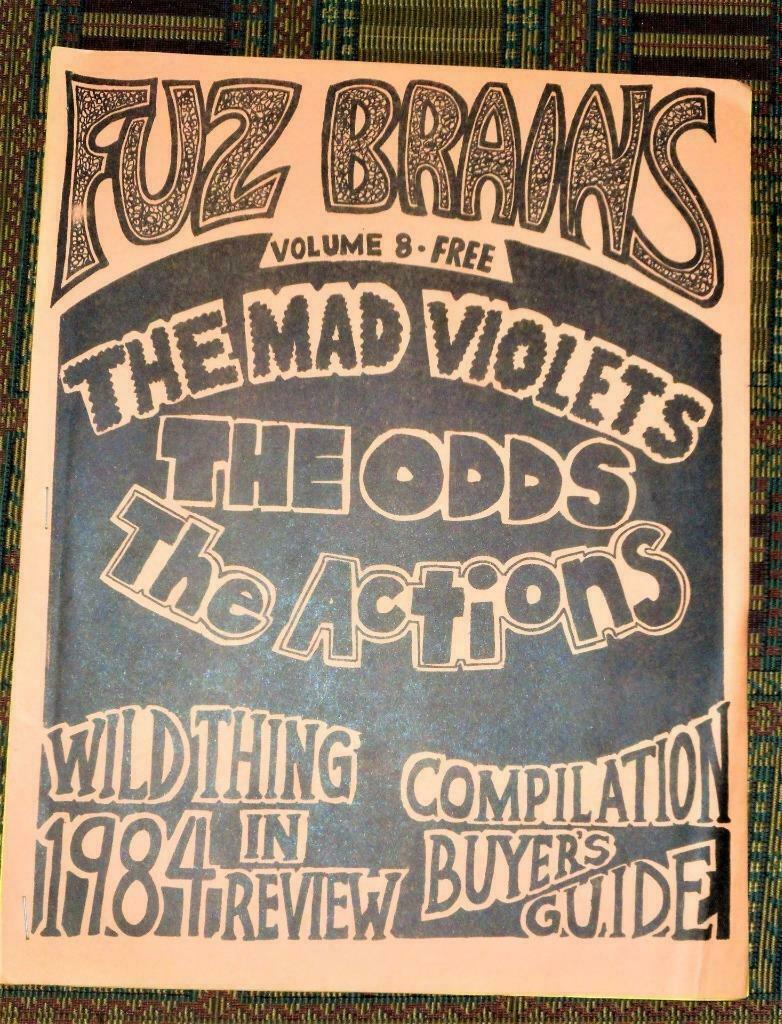 FUZ BRAINS
VOLUME 8 • FREE
THE MAD VIOLETS
THE ODDS
The Actions
WILD THING
1984 IN
REVIEW
COMPILATION
BUYER'S
GUIDE